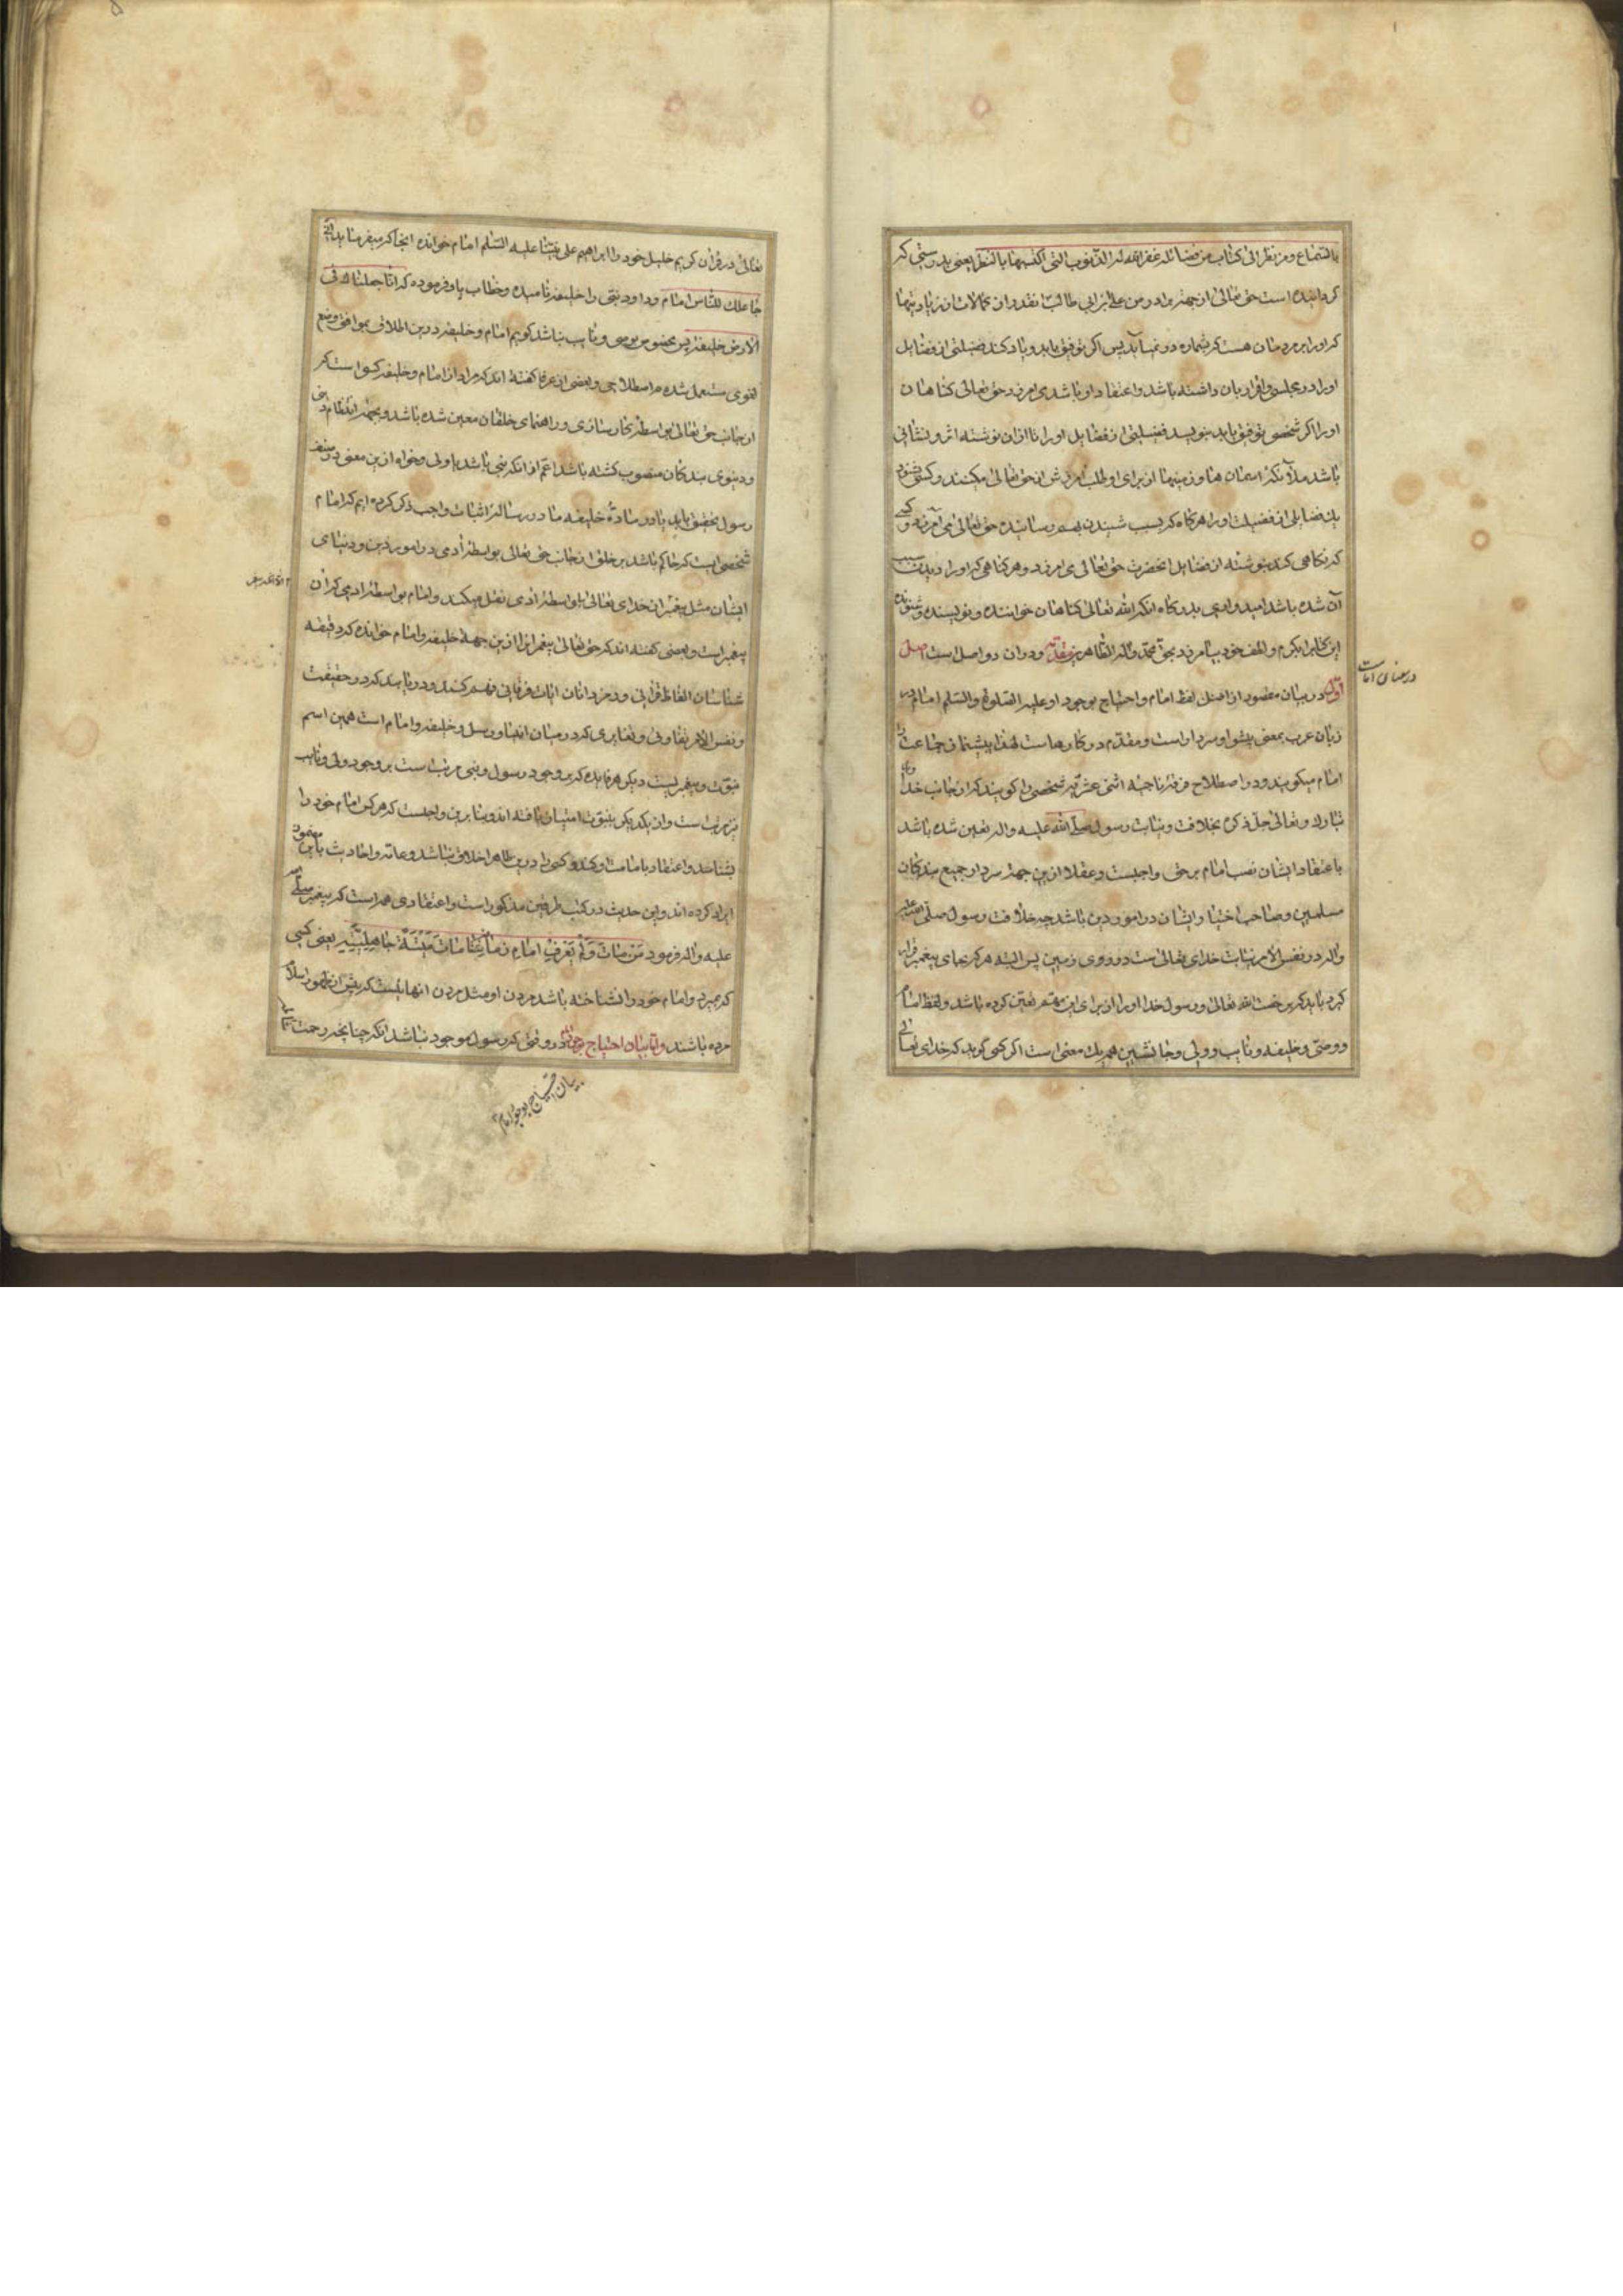 بالسّماع ومن نظر الی کتاب من فضائله غفر الله له الذّنوب التی اکتسبها بالنّظر یعنی بدرستی که
کردانیده است حق تعالی از جهة برادر من علی بن ابی طالب انقدر از کمالات و زیادتیها
که او را بر مردمان هست که بشماره در نمیآید پس اکر توفیق یابد و یاد کند فضیلتی از فضایل
او را در مجلسی و اقرار بان داشته باشد و اعتقاد او باشد می امرزد حق تعالی کناهان
او را اکر شخصی توفیق یابد بنویسد فضیلتی از فضایل او را تا از ان نوشته اثر و نشانی
باشد ملآئکه اسمان ها و زمینها از برای او طلب امرزش از حق تعالی میکنند و کسی بشنود
یک فضایلی از فضیلت او را هر کناه که بسبب شنیدن بهم رسانیده حق تعالی می آمرزد و کسی
که نکاهی کند بنوشته از فضایل انحضرت حق تعالی می امرزد هر کناهی که او را دیدن سبب
آن شده باشد امیدواری بدرکاه انکه الله تعالی کناهان خواننده و نویسنده و شنونده
این کتاب را بکرم و لطف خود بیامرزد بحق محمّد و آله الطّاهرین مقدّمه و دران دو اصل است اصل
اوّل در بیان مقصود از اصل لفظ امام و احتیاج بوجود او علیه الصّلوة والسّلم امام در
زبان عرب بمعنی پیشوا و سردار است و مقدّم در کارهاست لهذا پیشنماز جماعت را
امام میکویند و در اصطلاح فرقهٔ ناجیه اثنی عشریّه شخصی را کویند که از جانب خدا
تبارک و تعالی جلّ ذکره بخلافت و نیابت رسول صلّی الله علیه واله تعین شده باشد
باعتقاد ایشان نصب امام بر حق واجبست و عقلا ازین جهة سردار جمیع بندکان
مسلمین و صاحب اختیار ایشان در امور دین باشد چه خلافت رسول صلّی الله علیه
واله در نفس الامر نیابت خدای تعالی ست در روی زمین پس البته هر که جای پیغمبر قرار
کیرد باید که برخصت الله تعالی و رسول خدا او را از برای این مهم تعین کرده باشد و لفظ امام
و وصّی و خلیفه و نایب و ولی و جانشین همه یک معنی است اکر کسی کوید که خدای تعالی
در معنای امامت
تعالی در قران کریم خلیل خود را ابراهیم علی نبیّنا علیه السّلم امام خوانده انجا که میفرماید انّی
جاعلک للنّاس اماما و داود نبیّ را خلیفه نامیده و خطاب باو فرموده که انّا جعلناک فی
الارض خلیفة پس مخصوص بوصی و نایب نباشد کویم امام و خلیفه درین اطلاق بموافق وضع
لغوی مستعمل شده نه اصطلاحی و بعضی از عرفا کفته اند که مراد از امام و خلیفه کسی است که
از جانب حق تعالی بواسطهٔ کارسازی و راهنمای خلقان معین شده باشد و بجهة انتظام دینی
و دنیوی بندکان منصوب کشته باشد اعم از انکه نبی باشد یا ولی و خواه ازین معنی
رسول تحقیق یابد یا در مادّهٔ خلیفه ما در رسالهٔ اثبات واجب ذکر کرده ایم که امام
شخصی است که حاکم باشد بر خلق از جانب حق تعالی بواسطهٔ آدمی در امور دین و دنیای
ایشان مثل پیغمبران خدای تعالی بلا واسطهٔ آدمی نقل میکند و امام بواسطهٔ ادمی که ان
پیغمبر است و بعضی کفته اند که حق تعالی پیغمبر انرا ازین جهة خلیفه و امام خوانده که دقیقه
شناسان الفاظ قرانی و رمزدانان ایات فرقانی فهم کنند و دریابند که در حقیقت
و نفس الامر تفاوتی و تغایری که در میان انبیا و رسل و خلیفه و امام است همین اسم
نبوّت و پیغمبریست دیکر هر فایده که بر وجود رسول و نبی مرتب است بر وجود ولی و نایب
نیز مرتب است و از یکدیکر بنبوّت امتیاز یافته اند و بنابرین واجبست که هر کس امام خود را
بشناسد و اعتقاد بامامت او کند و کسی را درین ظاهرا خلافی نباشد و عامّه و احادیث باین مضمون
ایراد کرده اند و این حدیث در کتب طرفین مذکور است و اعتقادی همه است که پیغمبر صلّی الله
علیه واله فرمود مَن ماتَ وَلَم یَعْرِفْ امامَ زَمانِه ماتَ مَیْتَةً جاهِلِیَّةً یعنی کسی
که بمیرد و امام خود را نشناخته باشد مردن او مثل مردن انهائیست که پیش از ظهور اسلام
مرده باشند و امّا بیان احتیاج بوجود امام در وقتی که رسول موجود نباشد انکه چنانچه رحمت
بیان احتیاج بوجود امام